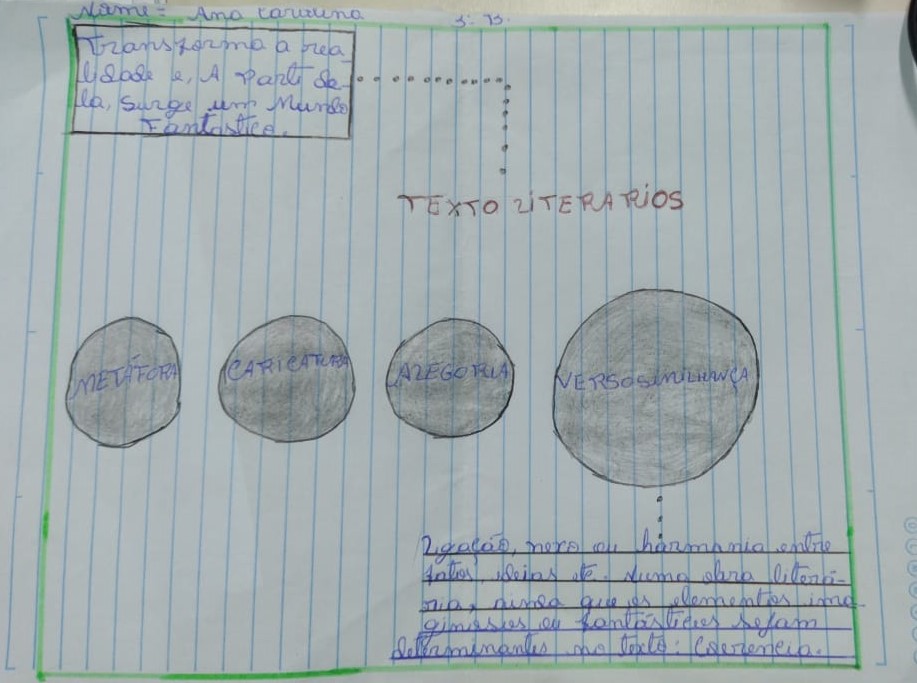 Name = Ana Carolina
Transforma a rea
lidade e, A Parti de-
la, Surge um Mundo
Fantástico.
TEXTO LITERARIOS
METÁFORA
CARICATURA
ALEGORIA
VERSOSIMILHANÇA
Ligação, nexo ou harmonia entre
fatos, ideias etc. Numa obra literá-
ria, ainda que os elementos ima-
ginários ou fantásticos sejam
determinantes no texto: Coerencia.